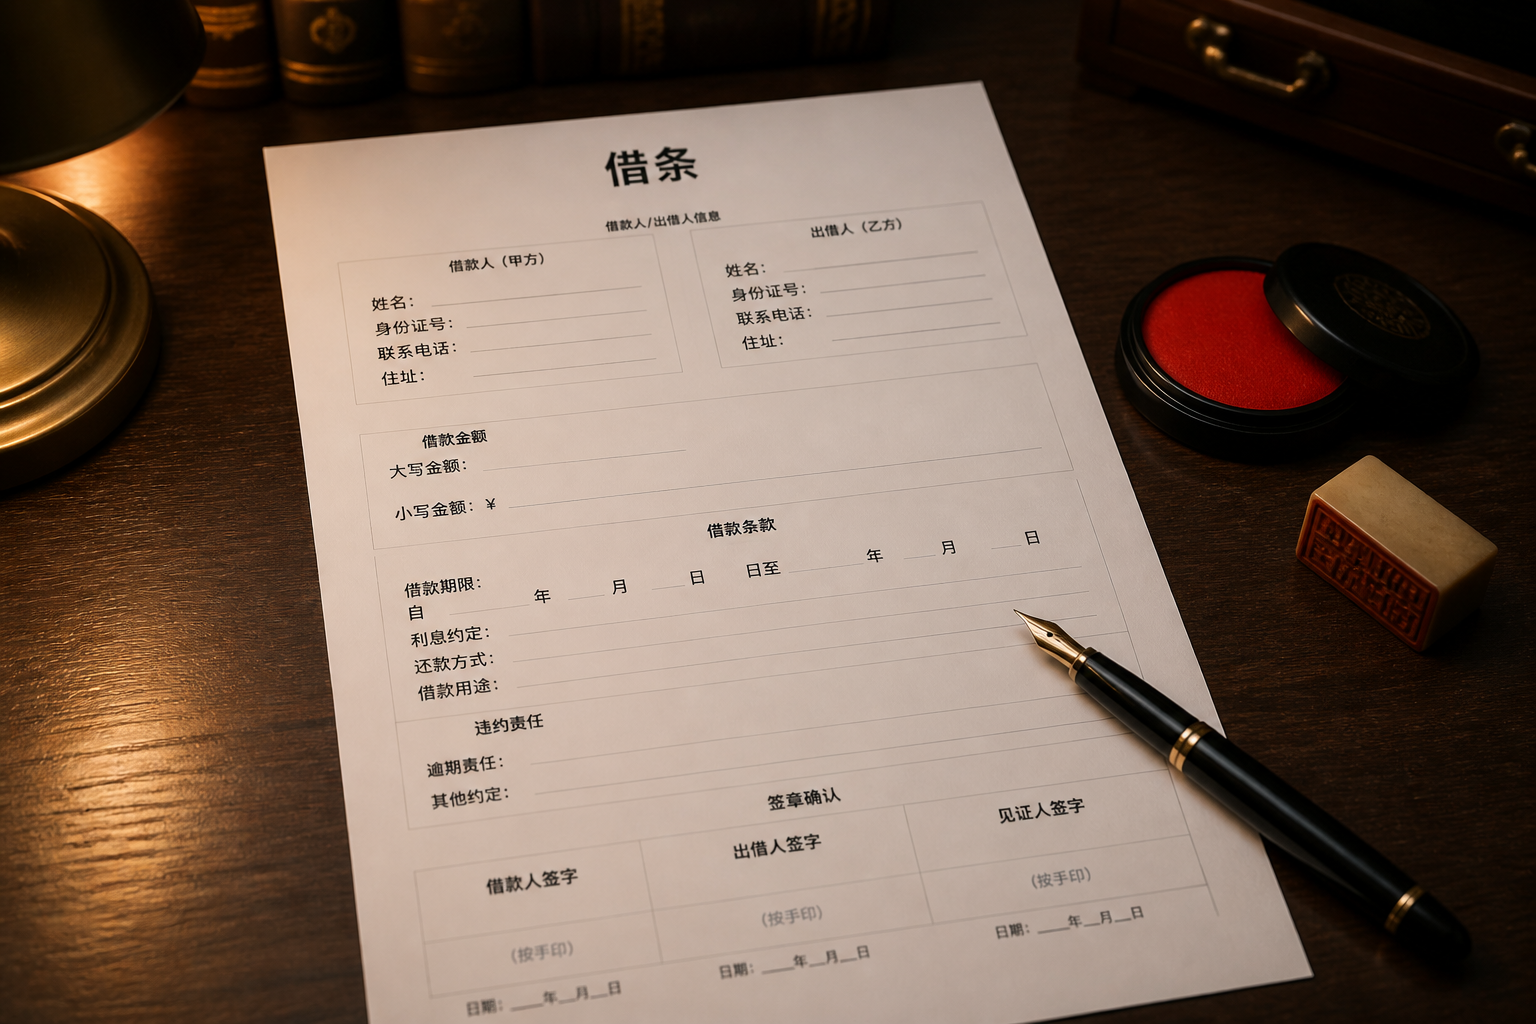 借条
借款人/出借人信息
借款人（甲方）
姓名：
身份证号：
联系电话：
住址：
出借人（乙方）
姓名：
身份证号：
联系电话：
住址：
借款金额
大写金额：
小写金额：¥
借款条款
借款期限：
自 年 月 日 日至 年 月 日
利息约定：
还款方式：
借款用途：
违约责任
逾期责任：
其他约定：
签章确认
借款人签字
出借人签字
见证人签字
（按手印）
（按手印）
（按手印）
日期：____年__月__日
日期：____年__月__日
日期：____年__月__日